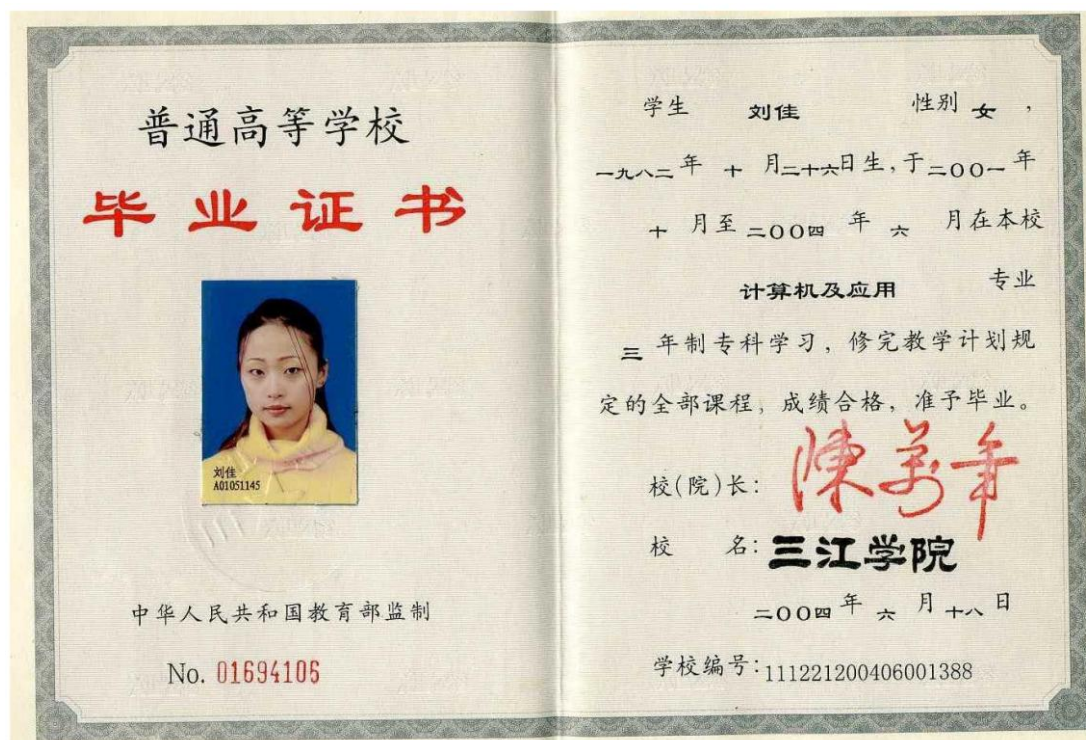 普通高等学校
毕业证书
刘佳
A01051145
中华人民共和国教育部监制
No. 01694106
学生 刘佳 性别 女，
一九八二年 十 月二十六日生，于二〇〇一年
十 月至 二〇〇四 年 六 月在本校
计算机及应用 专业
三 年制专科学习，修完教学计划规
定的全部课程，成绩合格，准予毕业。
校(院)长：陳萬年
校 名：三江学院
二〇〇四 年 六 月 十八 日
学校编号：111221200406001388